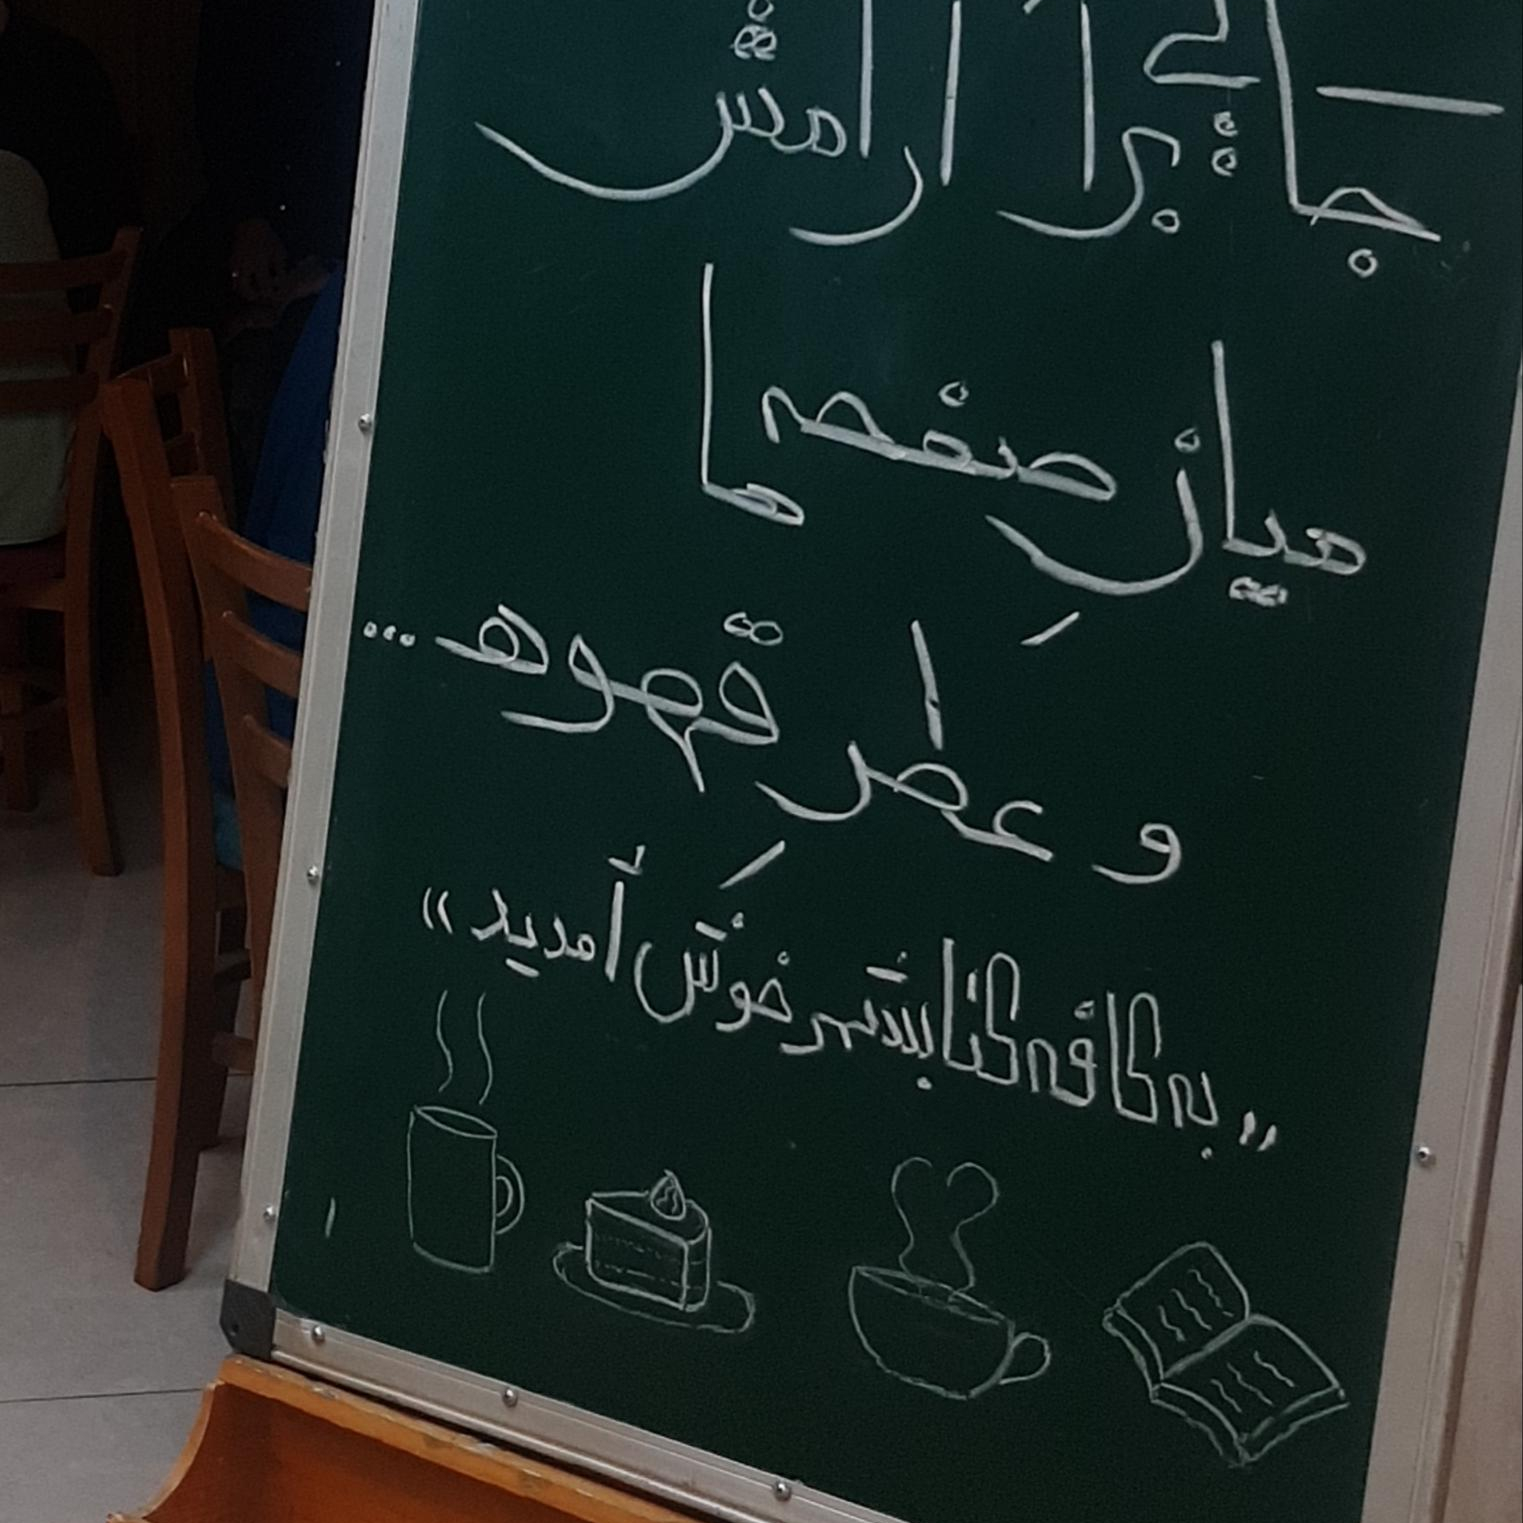 جایی برای آرامش
میانِ صفحه ها
و عطرِ قهوه...
«به کافه کتابشهر خوش آمدید»